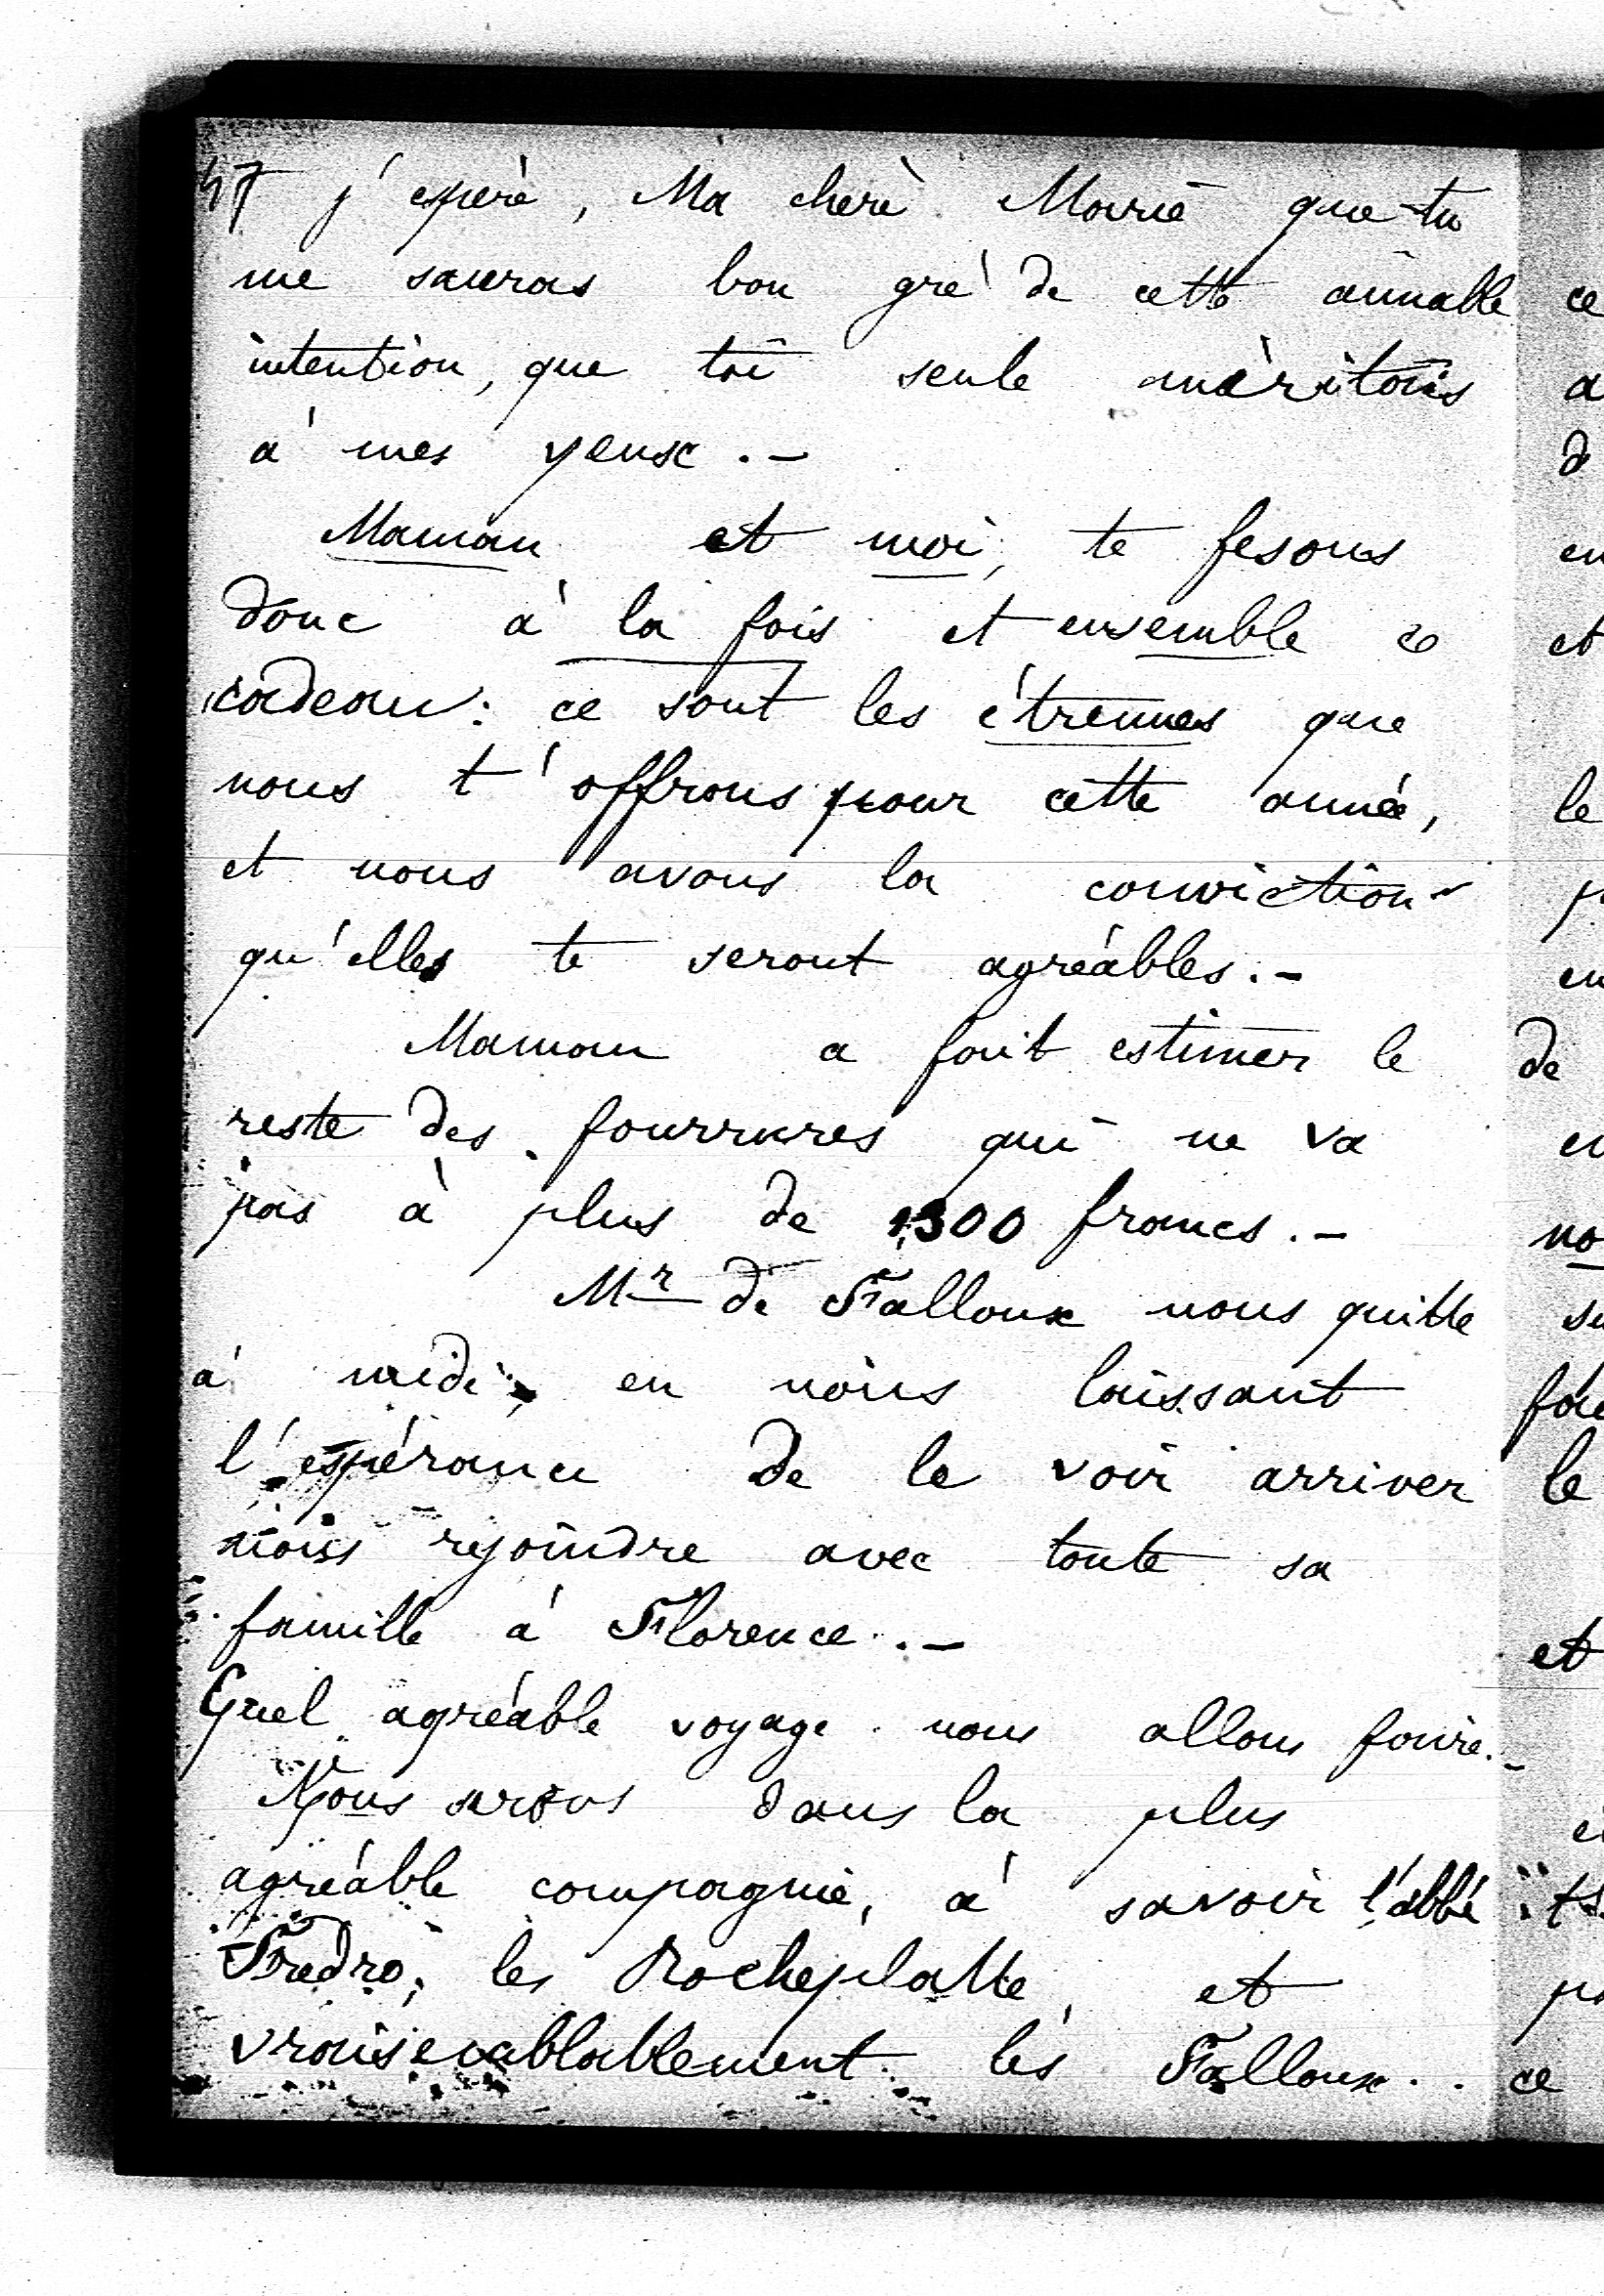 47 j'espère, Ma chère Marie que tu
me sauras bon gré de cette aimable
intention, que toi seule méritais
à mes yeux . –
Maman et moi, te fesons
donc à la fois et ensemble ce
cadeau : ce sont les étrennes que
nous t'offrons pour cette année,
et nous avons la conviction
qu'elles te seront agréables . –
Maman a fait estimer le
reste des fourrures qui ne va
pas à plus de 1300 francs . –
Mr de Falloux nous quitte
à midi, en nous laissant
l'espérance de le voir arriver
nous rejoindre avec toute sa
famille à Florence . –
Quel agréable voyage nous allons faire . –
Nous serons dans la plus
agréable compagnie, à savoir l'abbé
Fredro, les Rocheplatte, et
vraisemblablement les Falloux . .